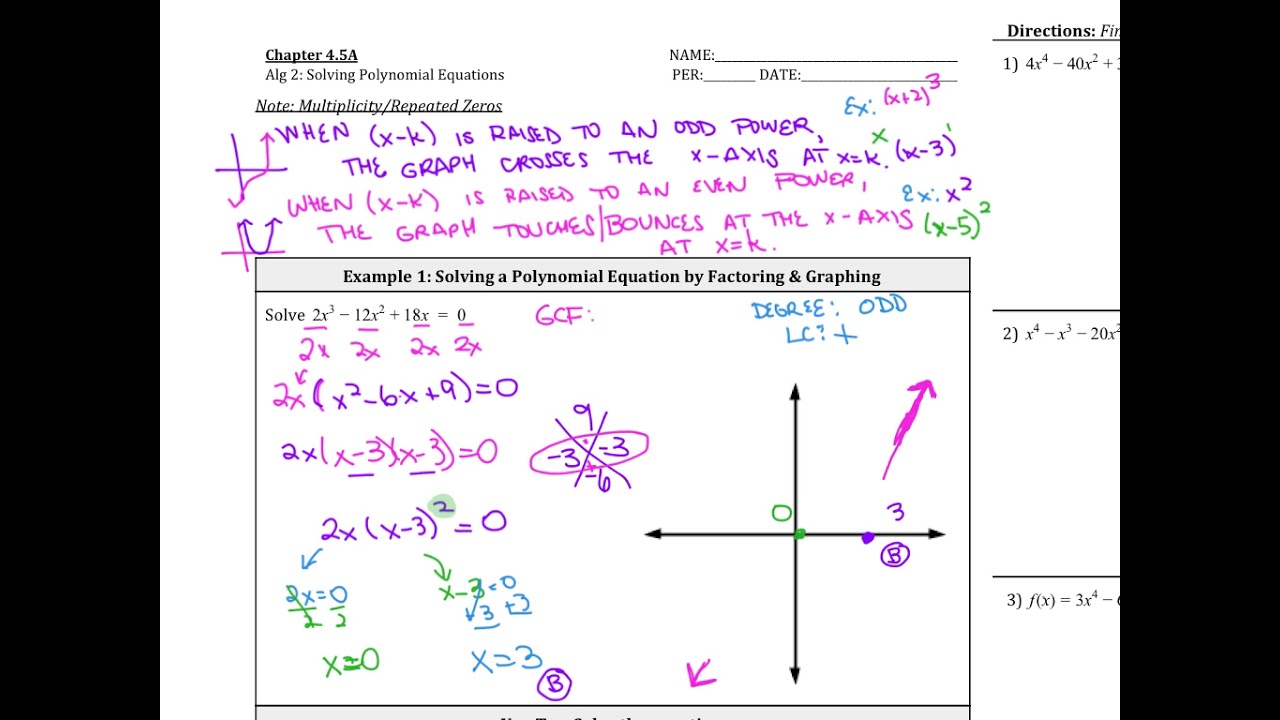 Chapter 4.5A
Alg 2: Solving Polynomial Equations
NAME:
PER: DATE:
Note: Multiplicity/Repeated Zeros
Ex: (x+2)³
WHEN (x-k) IS RAISED TO AN ODD POWER, x
THE GRAPH CROSSES THE X-AXIS AT x=k. (x-3)¹
WHEN (x-k) IS RAISED TO AN EVEN POWER, Ex: x²
THE GRAPH TOUCHES/BOUNCES AT THE X-AXIS (x-5)²
AT x=k.
Example 1: Solving a Polynomial Equation by Factoring & Graphing
Solve 2x³ − 12x² + 18x = 0
2x 2x 2x 2x
GCF:
DEGREE: ODD
LC? +
2x(x²-6x+9)=0
2x(x-3)(x-3)=0
9
-3 -3
-6
2x(x-3)²=0
2x=0
2 2
x=0
x-3=0
+3 +3
x=3
B
0
3
B
Directions:
1) 4x⁴ − 40x² +
2) x⁴ − x³ − 20x²
3) f(x) = 3x⁴ −